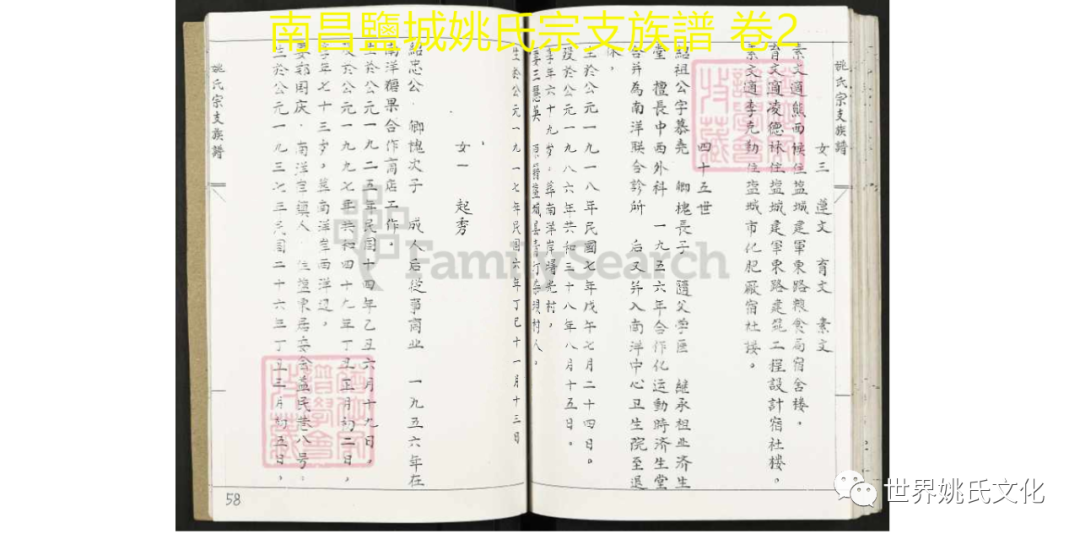 南昌鹽城姚氏宗支族譜 卷2
姚氏宗支族譜
女三 蓮文 育文 素文
素文適熊西候住塩城建軍東路粮食局宿舍楼。
育文適凌德 住塩城建軍東路建筑工程設計宿社楼。
素文適李 勤住塩城市化肥廠宿社楼。
四十五世
紹祖公字慕堯 卿槐長子 隨父學医 継承祖业済生
堂 擅長中西外科 一九五六年合作化运動時済生堂
合并為南洋联合診所 后又并入南洋中心卫生院至退
休,
生於公元一九一八年民國七年戊午七月二十四日。
殁於公元一九八六年共和三十八年八月十五日。
享年六十九岁。葬南洋岸 村,
生於公元一九一七年民國六年丁巳十一月十三日
女一 起秀
紹忠公 卿槐次子 成人后從事商业 一九五六年在
南洋糖果合作商店工作。
生於公元一九二五年民國十四年乙丑六月十九日。
殁於公元一九九七年共和四十九年丁丑正月初二日,
享年七十三岁。葬南洋岸西洋边,
娶 国庆 南洋岸 人 住 東居委会益民巷八号。
生於公元一九三七年民國二十六年丁丑三月初五日。
姚氏宗支族譜
58
FamilySearch
世界姚氏文化